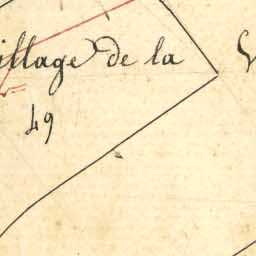 illage de la V
49